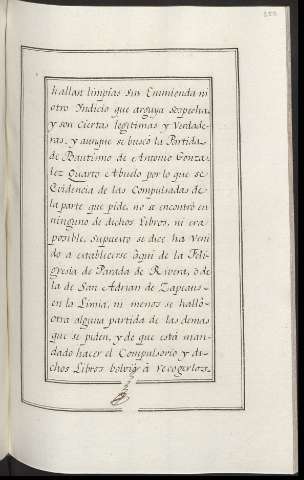 hallan limpias sin Enmienda ni
otro Indicio que arguya sospecha,
y son Ciertas legitimas y Verdade-
ras, y aunque se buscó la Partida
de Bautismo de Antonio Gonza-
lez Quarto Abuelo por lo que se
Evidencia de las Compulsadas de
la parte que pide, no se encontró en
ninguno de dichos Libros, ni era
posible, supuesto se dice ha Veni-
do a establecerse aqui de la Feli-
gresia de Parada de Rivera, ò de
la de San Adrian de Zapeaus-
en la Limia, ni menos se halló-
otra alguna partida de las demas
que se piden, y de que está man-
dado hacer el Compulsorio y di-
chos Libros bolvió à recogerlos-